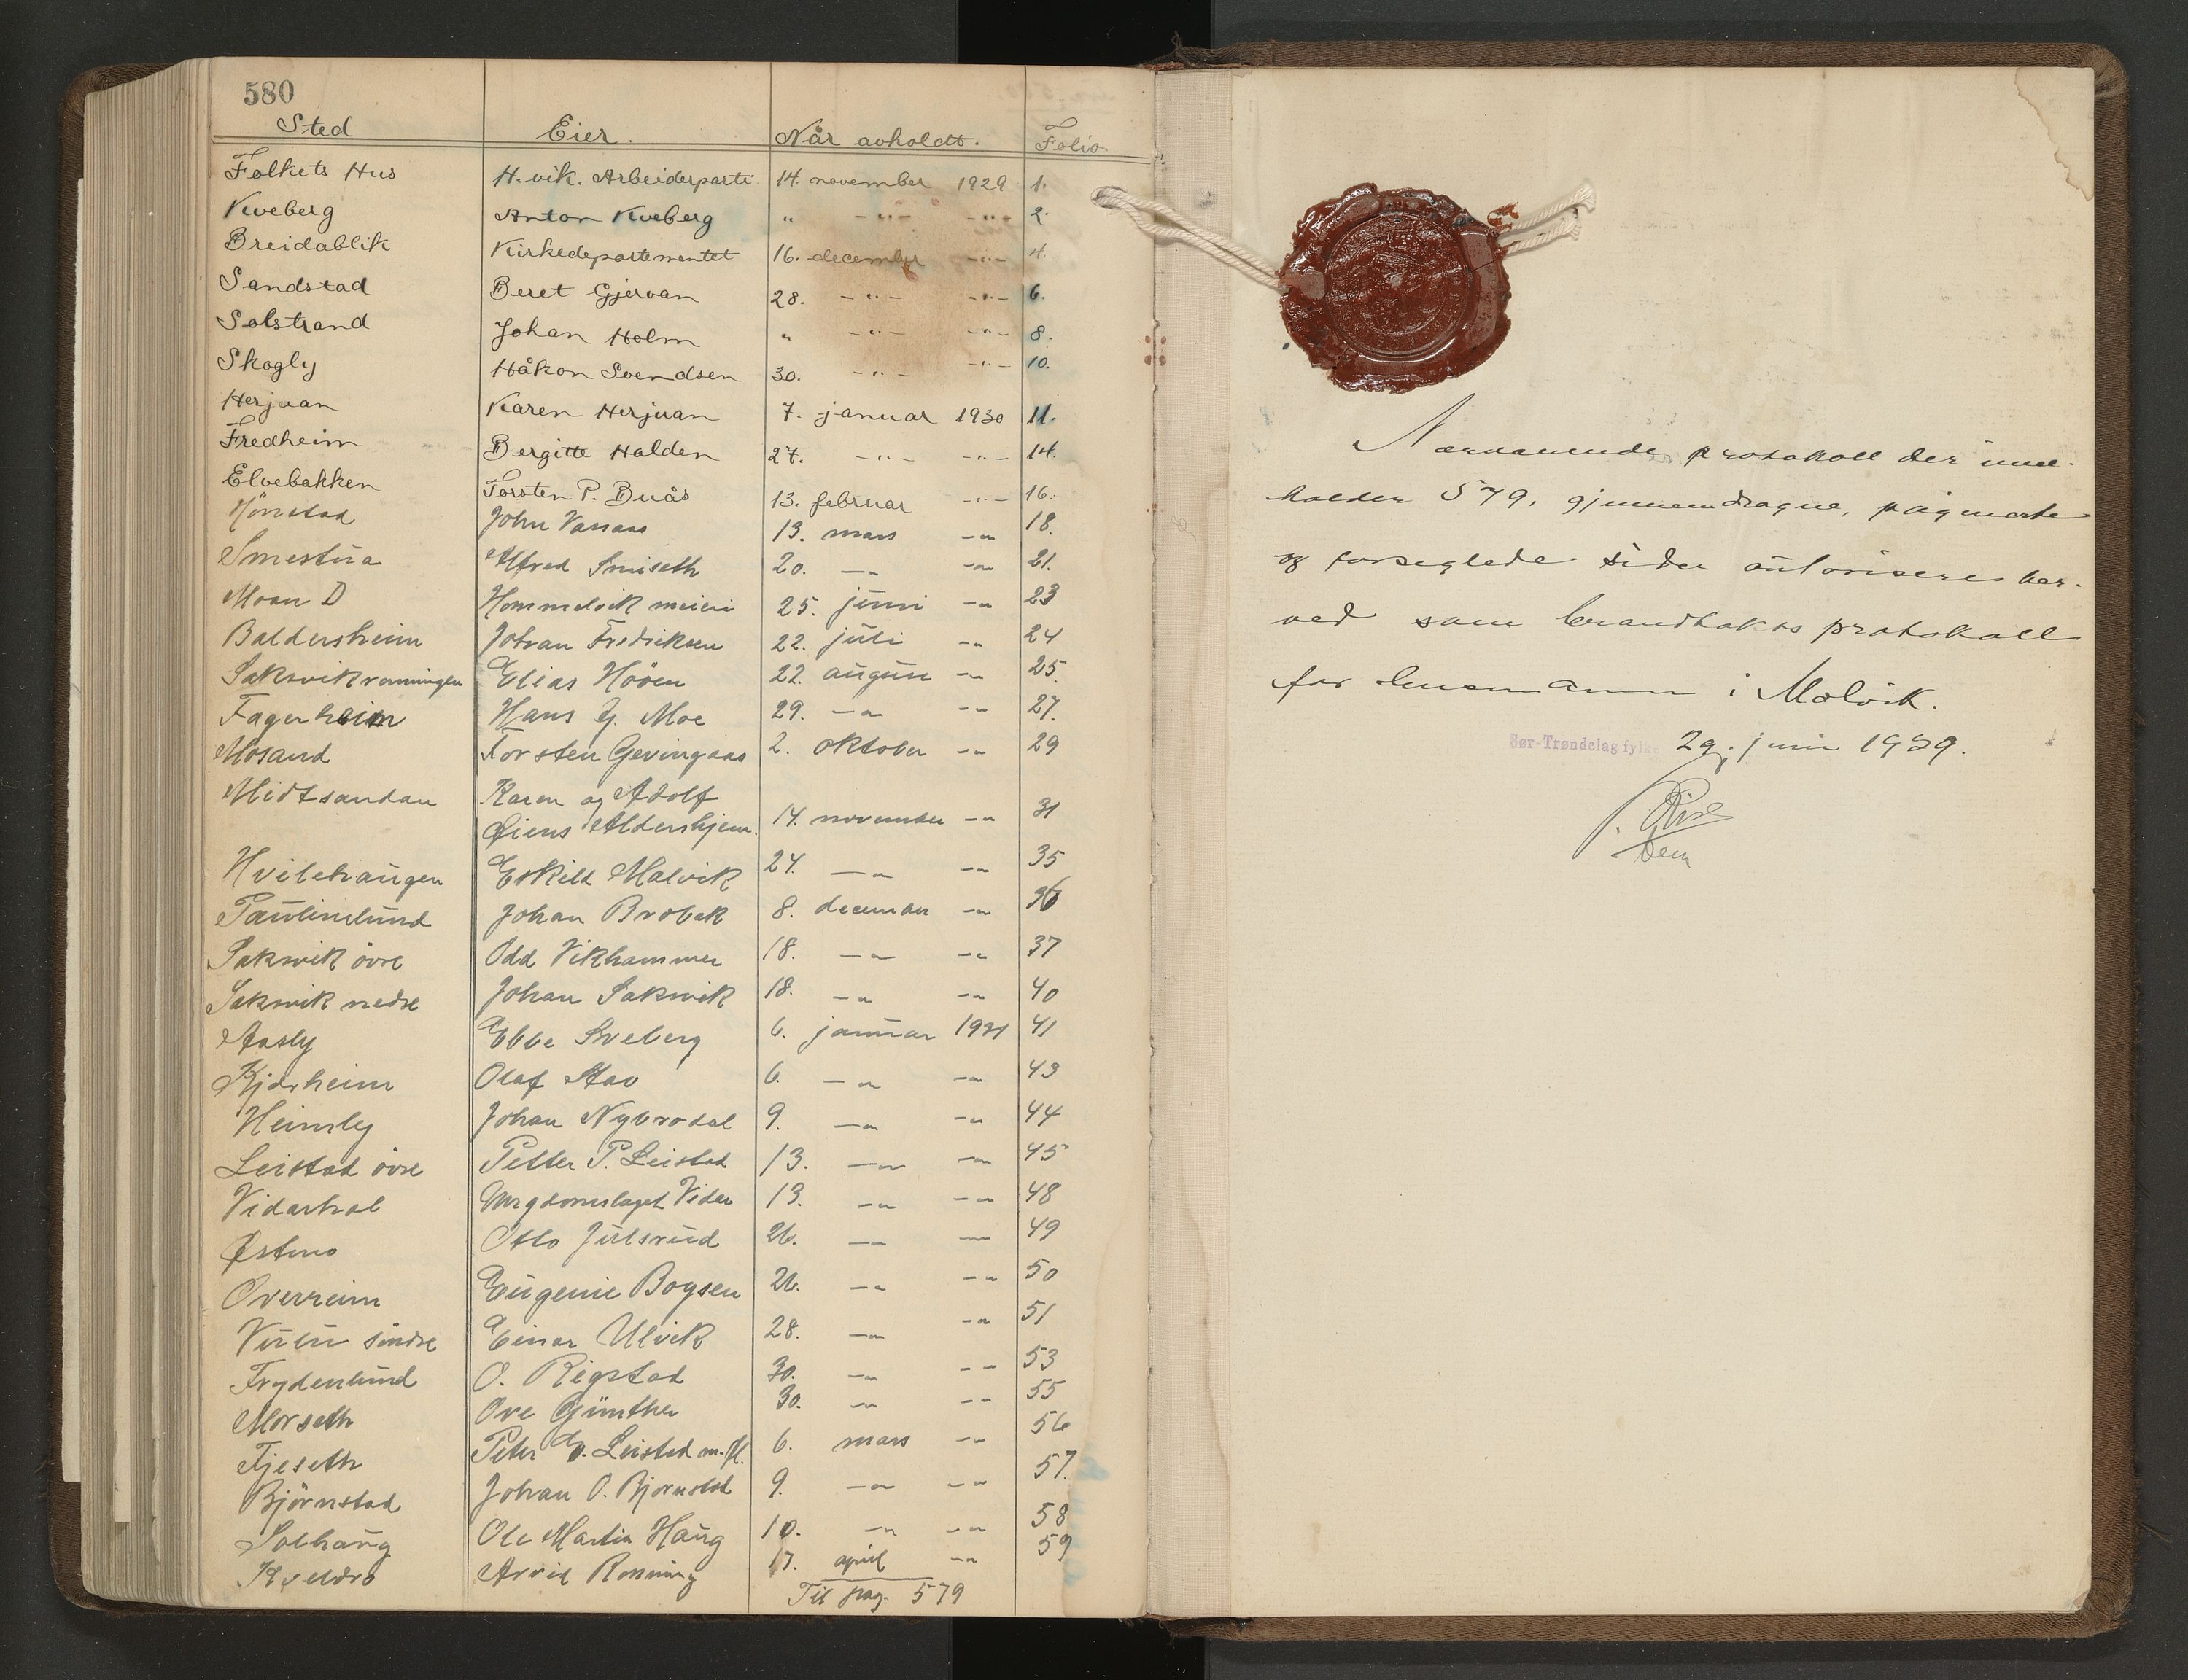 580
Sted Eier. Når avholdt. Folio
Folkets Hus H.vik. Arbeiderparti 14. november 1929 1.
Kveberg Anton Kveberg " -"- -"- 2.
Breidablik Kirkedepartementet 16. december -"- 4.
Sandstad Beret Gjervan 28. -"- -"- 6.
Solstrand Johan Holm " -"- -"- 8.
Skogly Håkon Svendsen 30. -"- -"- 10.
Herjuan Karen Herjuan 7. januar 1930 11.
Fredheim Bergitte Halden 27. -"- -"- 14.
Elvebakken Torsten P. Buås 13. februar -"- 16.
Hönstad John Vassaas 13. mars -"- 18.
Smestua Alfred Smiseth 20. -"- -"- 21.
Moan D Hommelvik meieri 25. juni -"- 23
Baldersheim Johan Fredriksen 22. juli -"- 24
Saksvikrønningen Elias Hööen 22. august -"- 25.
Fagerheim Hans G. Moe 29. -"- -"- 27.
Mosand Torsten Gevingaas 2. oktober -"- 29
Midtsandan Karen og Adolf
Öiens Aldershjem. 14. november -"- 31
Hvilehaugen Eskild Malvik 24. -"- -"- 35
Paulinelund Johan Brobak 8. december -"- 36
Saksvik övre Odd Vikhammer 18. -"- -"- 37
Saksvik nedre Johan Saksvik 18. -"- -"- 40
Aasly Ebbe Sveberg 6. januar 1931 41
Kjærheim Olaf Stav 6. -"- -"- 43
Heimly Johan Nybrodal 9. -"- -"- 44
Leistad övre Petter P. Leistad 13. -"- -"- 45
Vidarhal Ungdomslaget Vidar 13. -"- -"- 48
Østmo Otto Julsrud 26. -"- -"- 49
Overreim Eugenie Boysen 26. -"- -"- 50
Viken söndre Einar Ulvik 28. -"- -"- 51
Frydenlund O. Rigstad 30. -"- -"- 53
Morseth Ove Günther 30. -"- -"- 55
Fjeseth Peter O. Leistad m.fl. 6. mars -"- 56
Björnstad Johan O. Bjørnstad 9. -"- -"- 57.
Solhaug Ole Martin Haug 10. -"- -"- 58
Kveldro Arvid Rønning 17. april -"- 59
Til pag. 579
Nærværende protokoll der inne-
holder 579, gjennemdragne, paginerte
og forseglede sider autoriseres her-
ved som brandtakstprotokoll
for lensmannen i Malvik.
Sør-Trøndelag fylke 29. juni 1929.